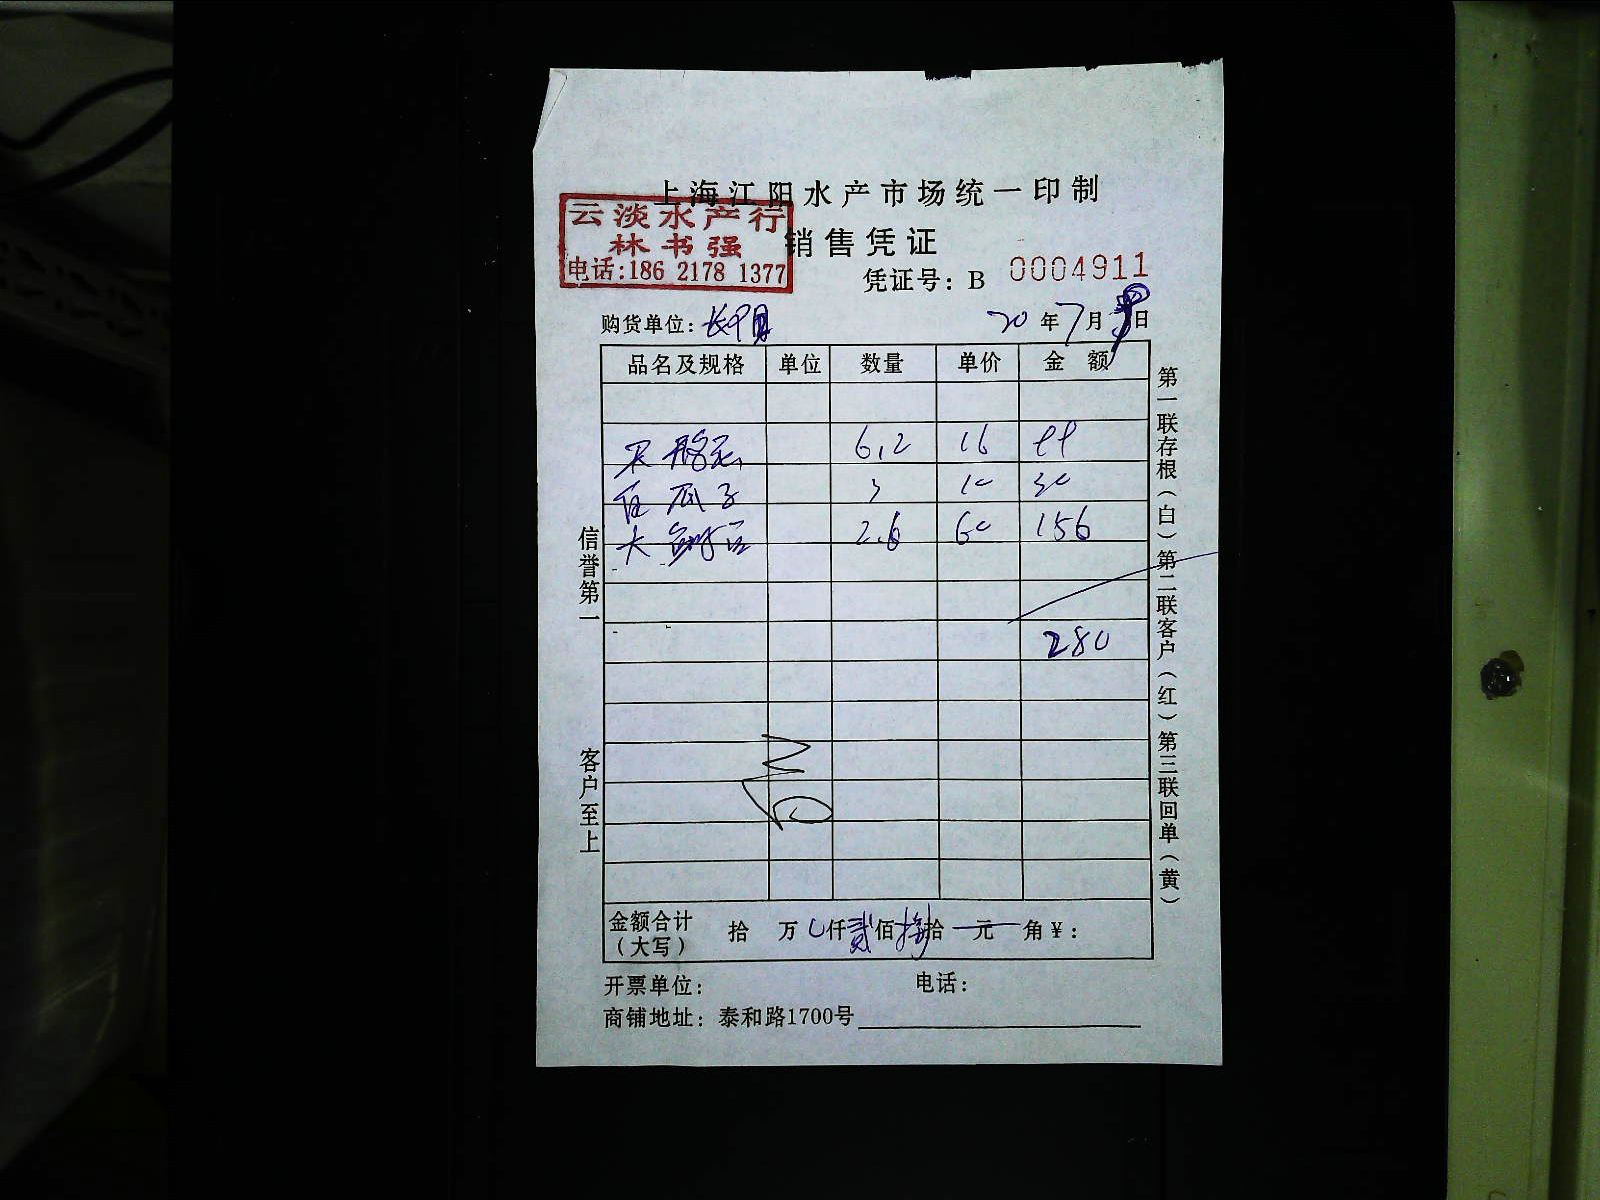 上海江阳水产市场统一印制
云淡水产行
林书强
电话:186 2178 1377
销售凭证
凭证号: B 0004911
购货单位:
20 年 7 月 日
品名及规格 单位 数量 单价 金 额
6.2 16
瓜子 3 10 30
大 2.6 60 156
280
金额合计(大写) 拾 万 仟 贰 佰 捌 拾 元 角 ¥:
开票单位: 电话:
商铺地址: 泰和路1700号
信誉第一
客户至上
第一联存根(白)第二联客户(红)第三联回单(黄)